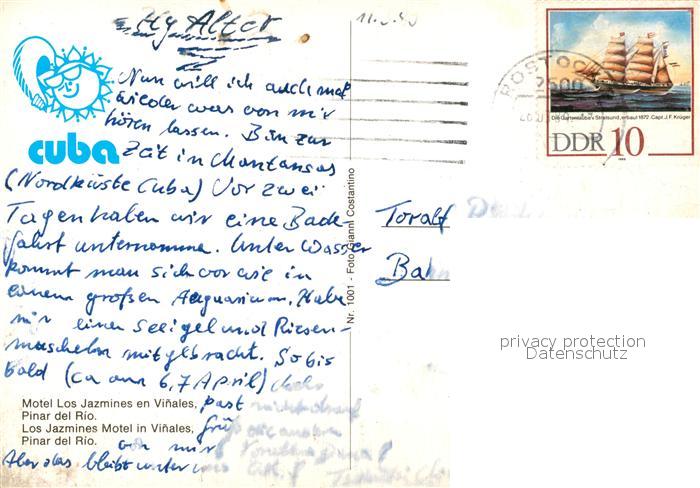 Hy Alter
Nun will ich auch mal
wieder was von mir
hören lassen. Bin zur
Zeit in Mantansas
(Nordküste Cuba) Vor zwei
Tagen haben wir eine Bade-
fahrt unternomme. Unter Wasser
kommt man sich vor wie in
einem großen Aquarium. Habe
mir einen Seeigel und Riesen-
muscheln mitgebracht. So bis
bald (ca am 6,7 April)
past
von mir
Aber das bleibt unter uns
cuba
Motel Los Jazmines en Viñales,
Pinar del Río.
Los Jazmines Motel in Viñales,
Pinar del Río.
Nr. 1001 - Foto Gianni Costantino
ROSTOCK
2500
Die Gartenlaube Stralsund, erbaut 1872. Capt. J.F. Krüger
DDR 10
Toralf
Bahn
privacy protection
Datenschutz